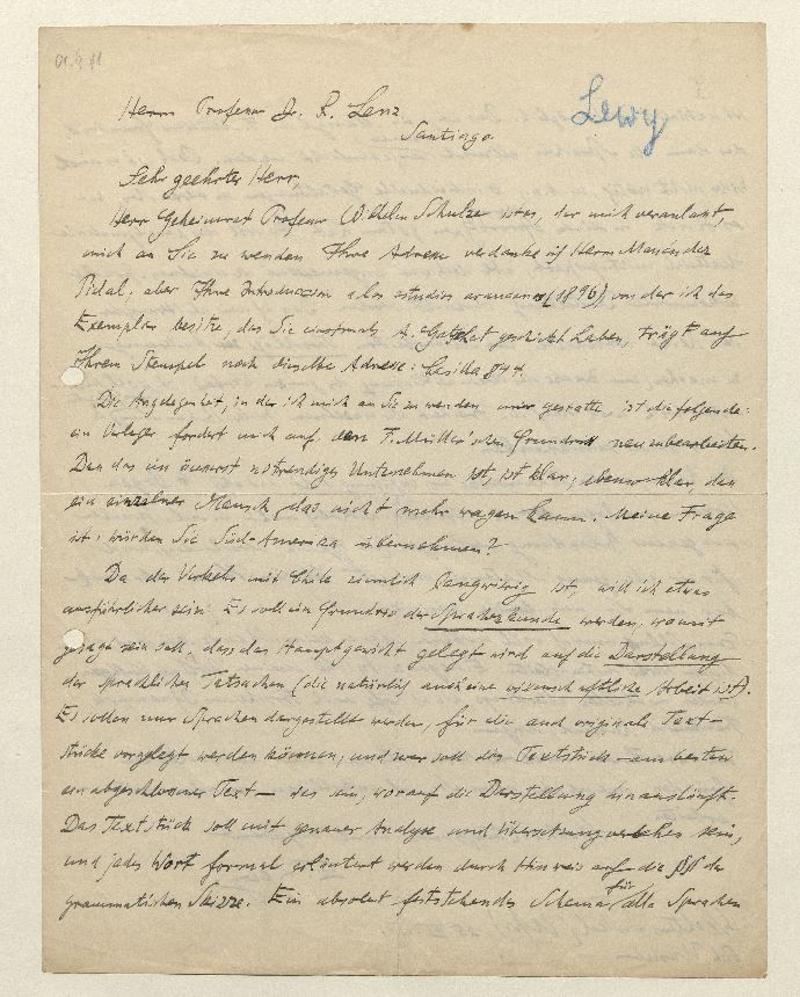 Lewy
Herrn Professor Dr. R. Lenz
Santiago.
Sehr geehrter Herr,
Herr Geheimrat Professor Wilhelm Schulze ist es, der mich veranlaßt,
mich an Sie zu wenden. Ihre Adresse verdanke ich Herrn Menéndez
Pidal, aber Ihre Introduccion a los estudios araucanos (1896), von der ich das
Exemplar besitze, das Sie einstmals A. Gatschet geschickt haben, trägt auf
Ihrem Stempel noch dieselbe Adresse: Casilla 844.
Die Angelegenheit, in der ich mich an Sie zu wenden mir gestatte, ist die folgende:
ein Verleger fordert mich auf, den F. Müller'schen Grundriß neu zu bearbeiten.
Daß das ein äusserst notwendiges Unternehmen ist, ist klar; ebenso klar, daß
ein einzelner Mensch das nicht mehr wagen kann. Meine Frage
ist: würden Sie Süd-Amerika übernehmen?
Da der Verkehr mit Chile ziemlich langwierig ist, will ich etwas
ausführlicher sein. Es soll ein Grundriss der Sprachenkunde werden, womit
gesagt sein soll, dass das Hauptgewicht gelegt wird auf die Darstellung
der sprachlichen Tatsachen (die natürlich auch eine wissenschaftliche Arbeit ist).
Es sollen nur Sprachen dargestellt werden, für die auch originale Text-
stücke vorgelegt werden können; und zwar soll das Textstück – am besten
ein abgeschlossener Text – das sein, worauf die Darstellung hinausläuft.
Das Textstück soll mit genauer Analyse und Übersetzung versehen sein,
und jedes Wort formal erläutert werden durch Hinweis auf die §§ der
grammatischen Skizze. Ein absolut feststehendes Schema für alle Sprachen